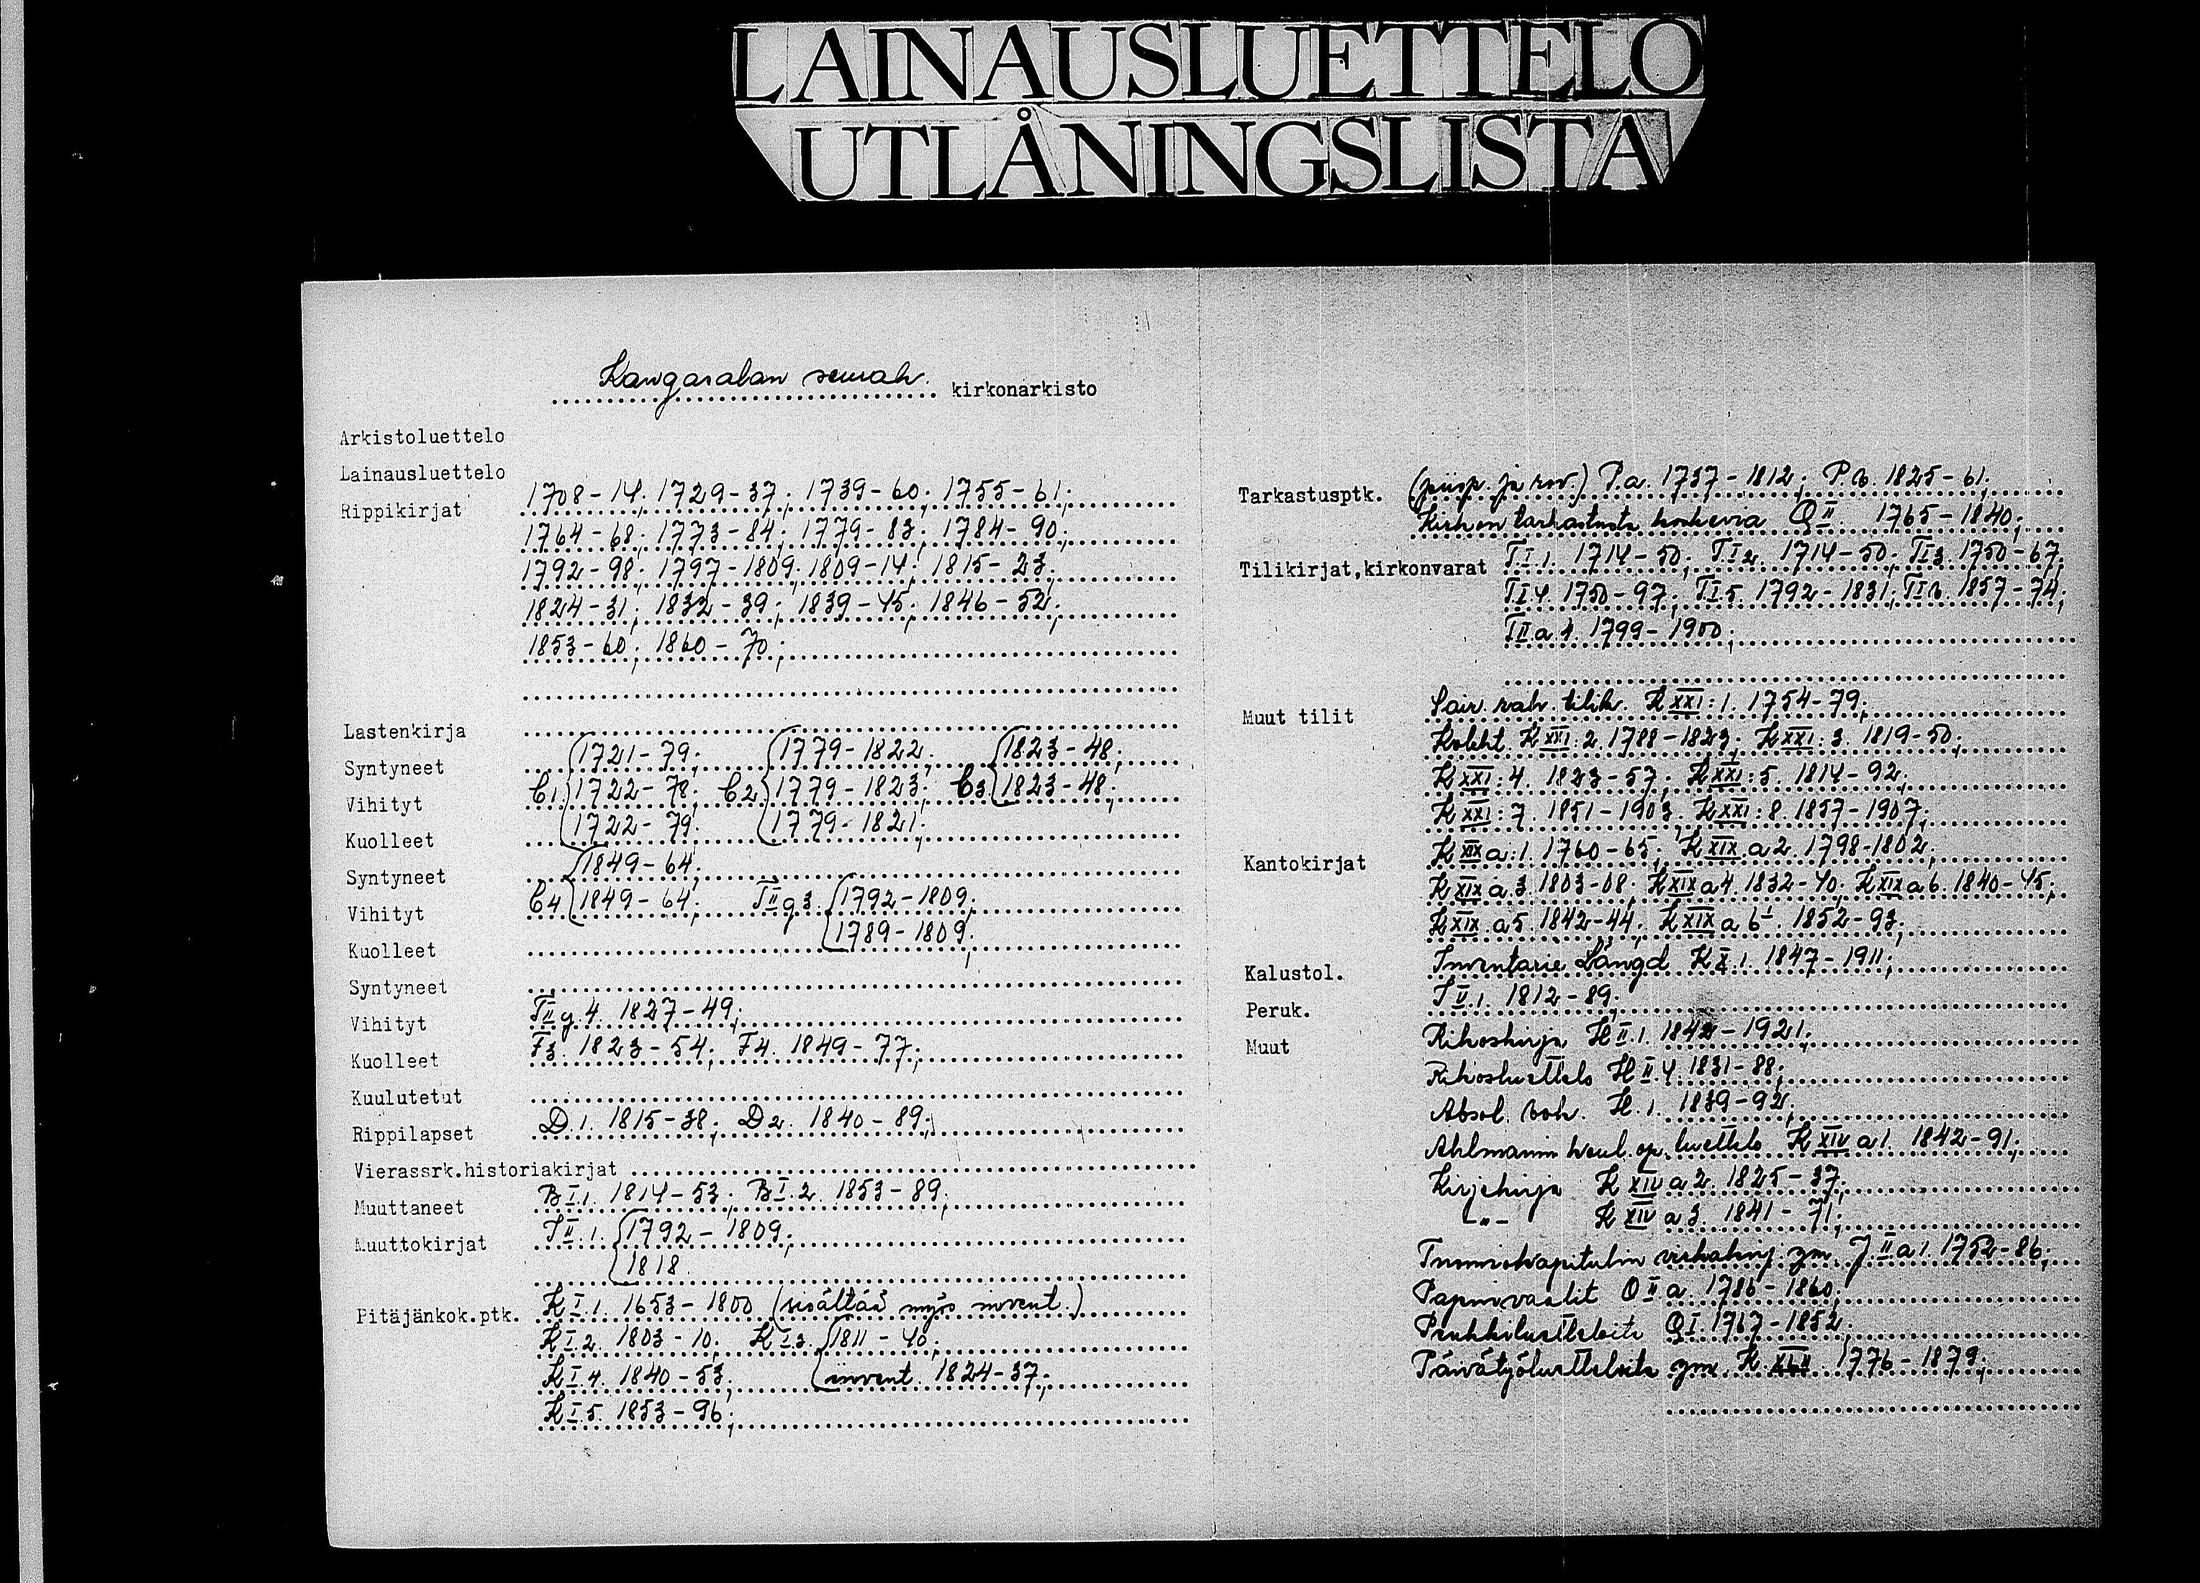 LAINAUSLUETTELO
UTLÅNINGSLISTA
Kangasalan seurak. kirkonarkisto
Arkistoluettelo
Lainausluettelo
Rippikirjat 1708-14; 1729-37; 1739-60; 1755-61;
1764-68; 1773-84; 1779-83; 1784-90;
1792-98; 1797-1809; 1809-14; 1815-23;
1824-31; 1832-39; 1839-45; 1846-52;
1853-60; 1860-70;
Lastenkirja
Syntyneet 1721-79; 1779-1822; 1823-48;
Vihityt C1 1722-78; C2 1779-1823; C3 1823-48;
Kuolleet 1722-79; 1779-1821;
Syntyneet 1849-64;
Vihityt C4 1849-64; TII g3. 1792-1809;
Kuolleet 1789-1809;
Syntyneet
Vihityt TII g.4. 1827-49;
Kuolleet F3. 1823-54; F4. 1849-77;
Kuulutetut
Rippilapset D.1. 1815-38; D2. 1840-89;
Vierassrk.historiakirjat
Muuttaneet BI.1. 1814-53; BI.2. 1853-89;
Muuttokirjat II.1. 1792-1809;
1818.
Pitäjänkok.ptk. KI.1. 1653-1800 (sisältää myös invent.)
KI.2. 1803-10; KI.3. 1811-40;
KI.4. 1840-53; invent. 1824-37;
KI.5. 1853-96;
Tarkastusptk. (piisp. ja rov.) P.a. 1737-1812; P.b. 1825-61;
Kirkon tarkastusta koskevia QII. 1765-1840;
Tilikirjat,kirkonvarat TI.1. 1714-50; TI2. 1714-50; TI3. 1750-67;
TI.4. 1750-97; TI5. 1792-1831; TI6. 1857-74;
TII.a.1. 1799-1900;
Muut tilit Sair. rah. tilik. KXXI:1. 1754-79;
Koleht. KXXI:2. 1788-1823; KXXI:3. 1819-50;
KXXI:4. 1823-57; KXXI:5. 1814-92;
KXXI:7. 1851-1903. KXXI:8. 1857-1907;
Kantokirjat KXIX a:1. 1760-65; KXIX.a2. 1798-1802;
KXIX a.3. 1803-08; KXIX a4. 1832-40; KXIX a6. 1840-45;
KXIX a5. 1842-44; KXIX a 6¹. 1852-93;
Kalustol. Inventarie Längd KX.1. 1847-1911;
Peruk. IV.1. 1812-89;
Muut Rikoskirja HII.1. 1842-1921;
Rikosluettelo HII.4. 1831-88;
Absol. bok. H.1. 1839-92;
Ahlmannin koul. op. luettelo KXIV a1. 1842-91;
Kirjekirja KXIV a2. 1825-37;
-"- KXIV a3. 1841-71;
Tuomiokapitulin virkakirj. ym. JII a1. 1752-86;
Papinvaalit OII a. 1786-1860;
Penkkiluetteloita QI. 1767-1852;
Päivätyöluetteloita ym. K 1776-1879;